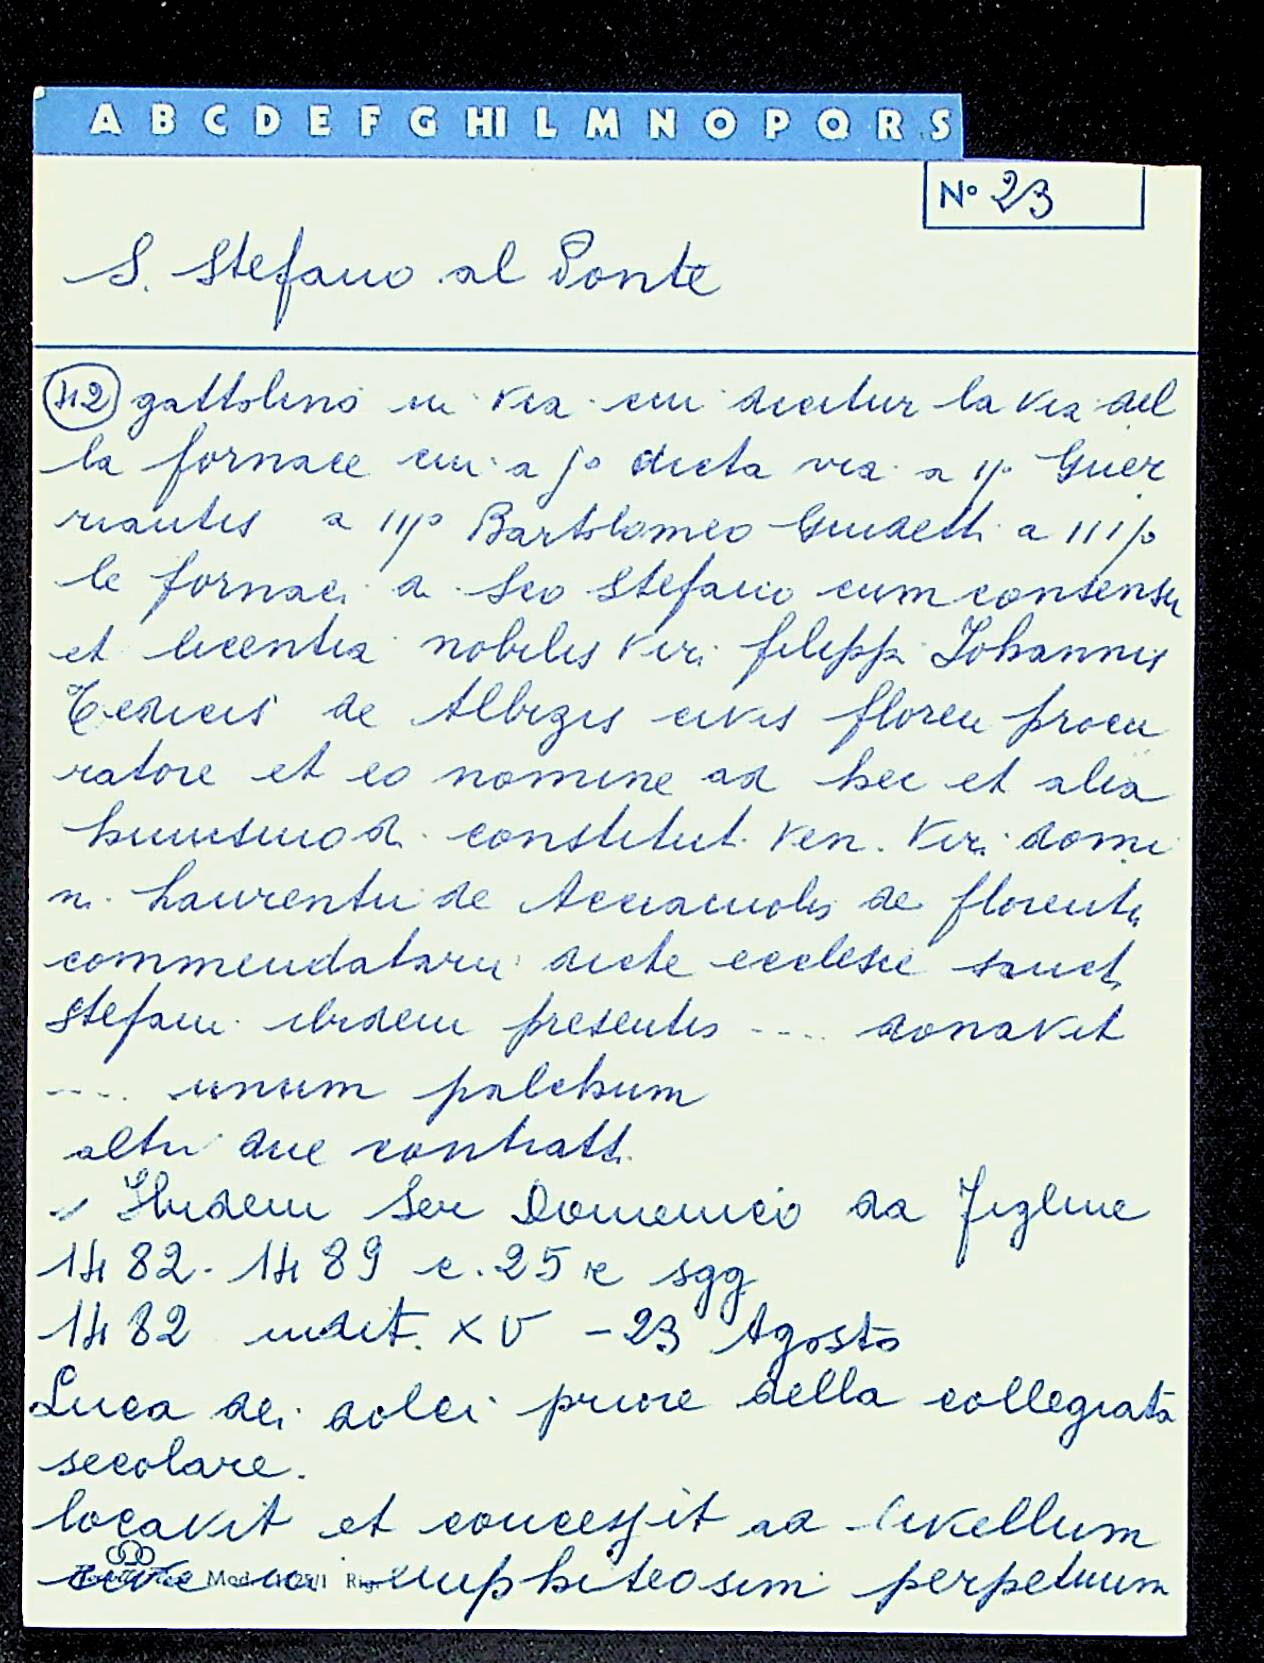 A B C D E F G HI L M N O P Q R S
N° 23
S. Stefano al Ponte
42 gattolino in via cui dicitur la via del
la fornace cui a j° dicta via a ij° Guer
riantis a iij° Bartolomeo Guidetti a iiij°
le fornaci di Sco Stefano cum consensu
et licentia nobilis viri filippi Johannis
Tedicis de Albizis civis floren procu
ratore et eo nomine ad hec et alia
huiusmodi constitut. ven. viri domi
ni Laurentii de Acciaiuolis de florentia
commendatarii dicte ecclesie sancti
Stefani ibidem presentis ... donavit
.... unum palchum
altri due contratti
Ibidem Ser Domenico da Figline
1482-1489 c. 25 e sgg
1482 indit. XV - 23 Agosto
Luca dei dolci priore della collegiata
secolare.
locavit et concessit ad livellum
sive in emphiteosim perpetuum
Mod.